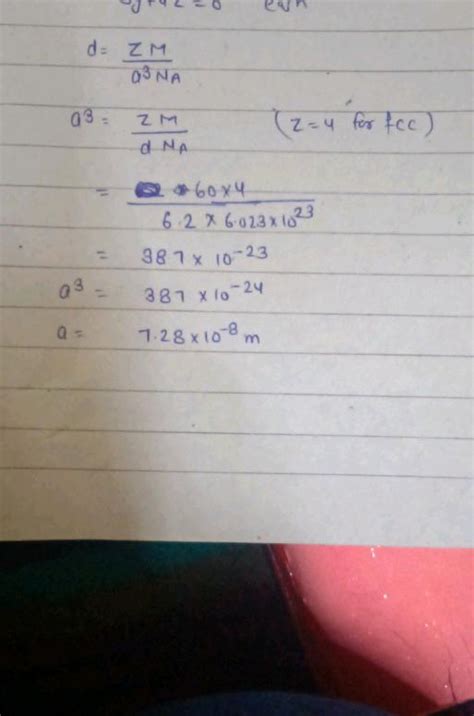 d = Z M / a³ NA
a³ = Z M / d NA (Z=4 for fcc)
= 60 x 4 / 6.2 x 6.023 x 10²³
= 387 x 10⁻²³
a³ = 387 x 10⁻²⁴
a = 7.28 x 10⁻⁸ m